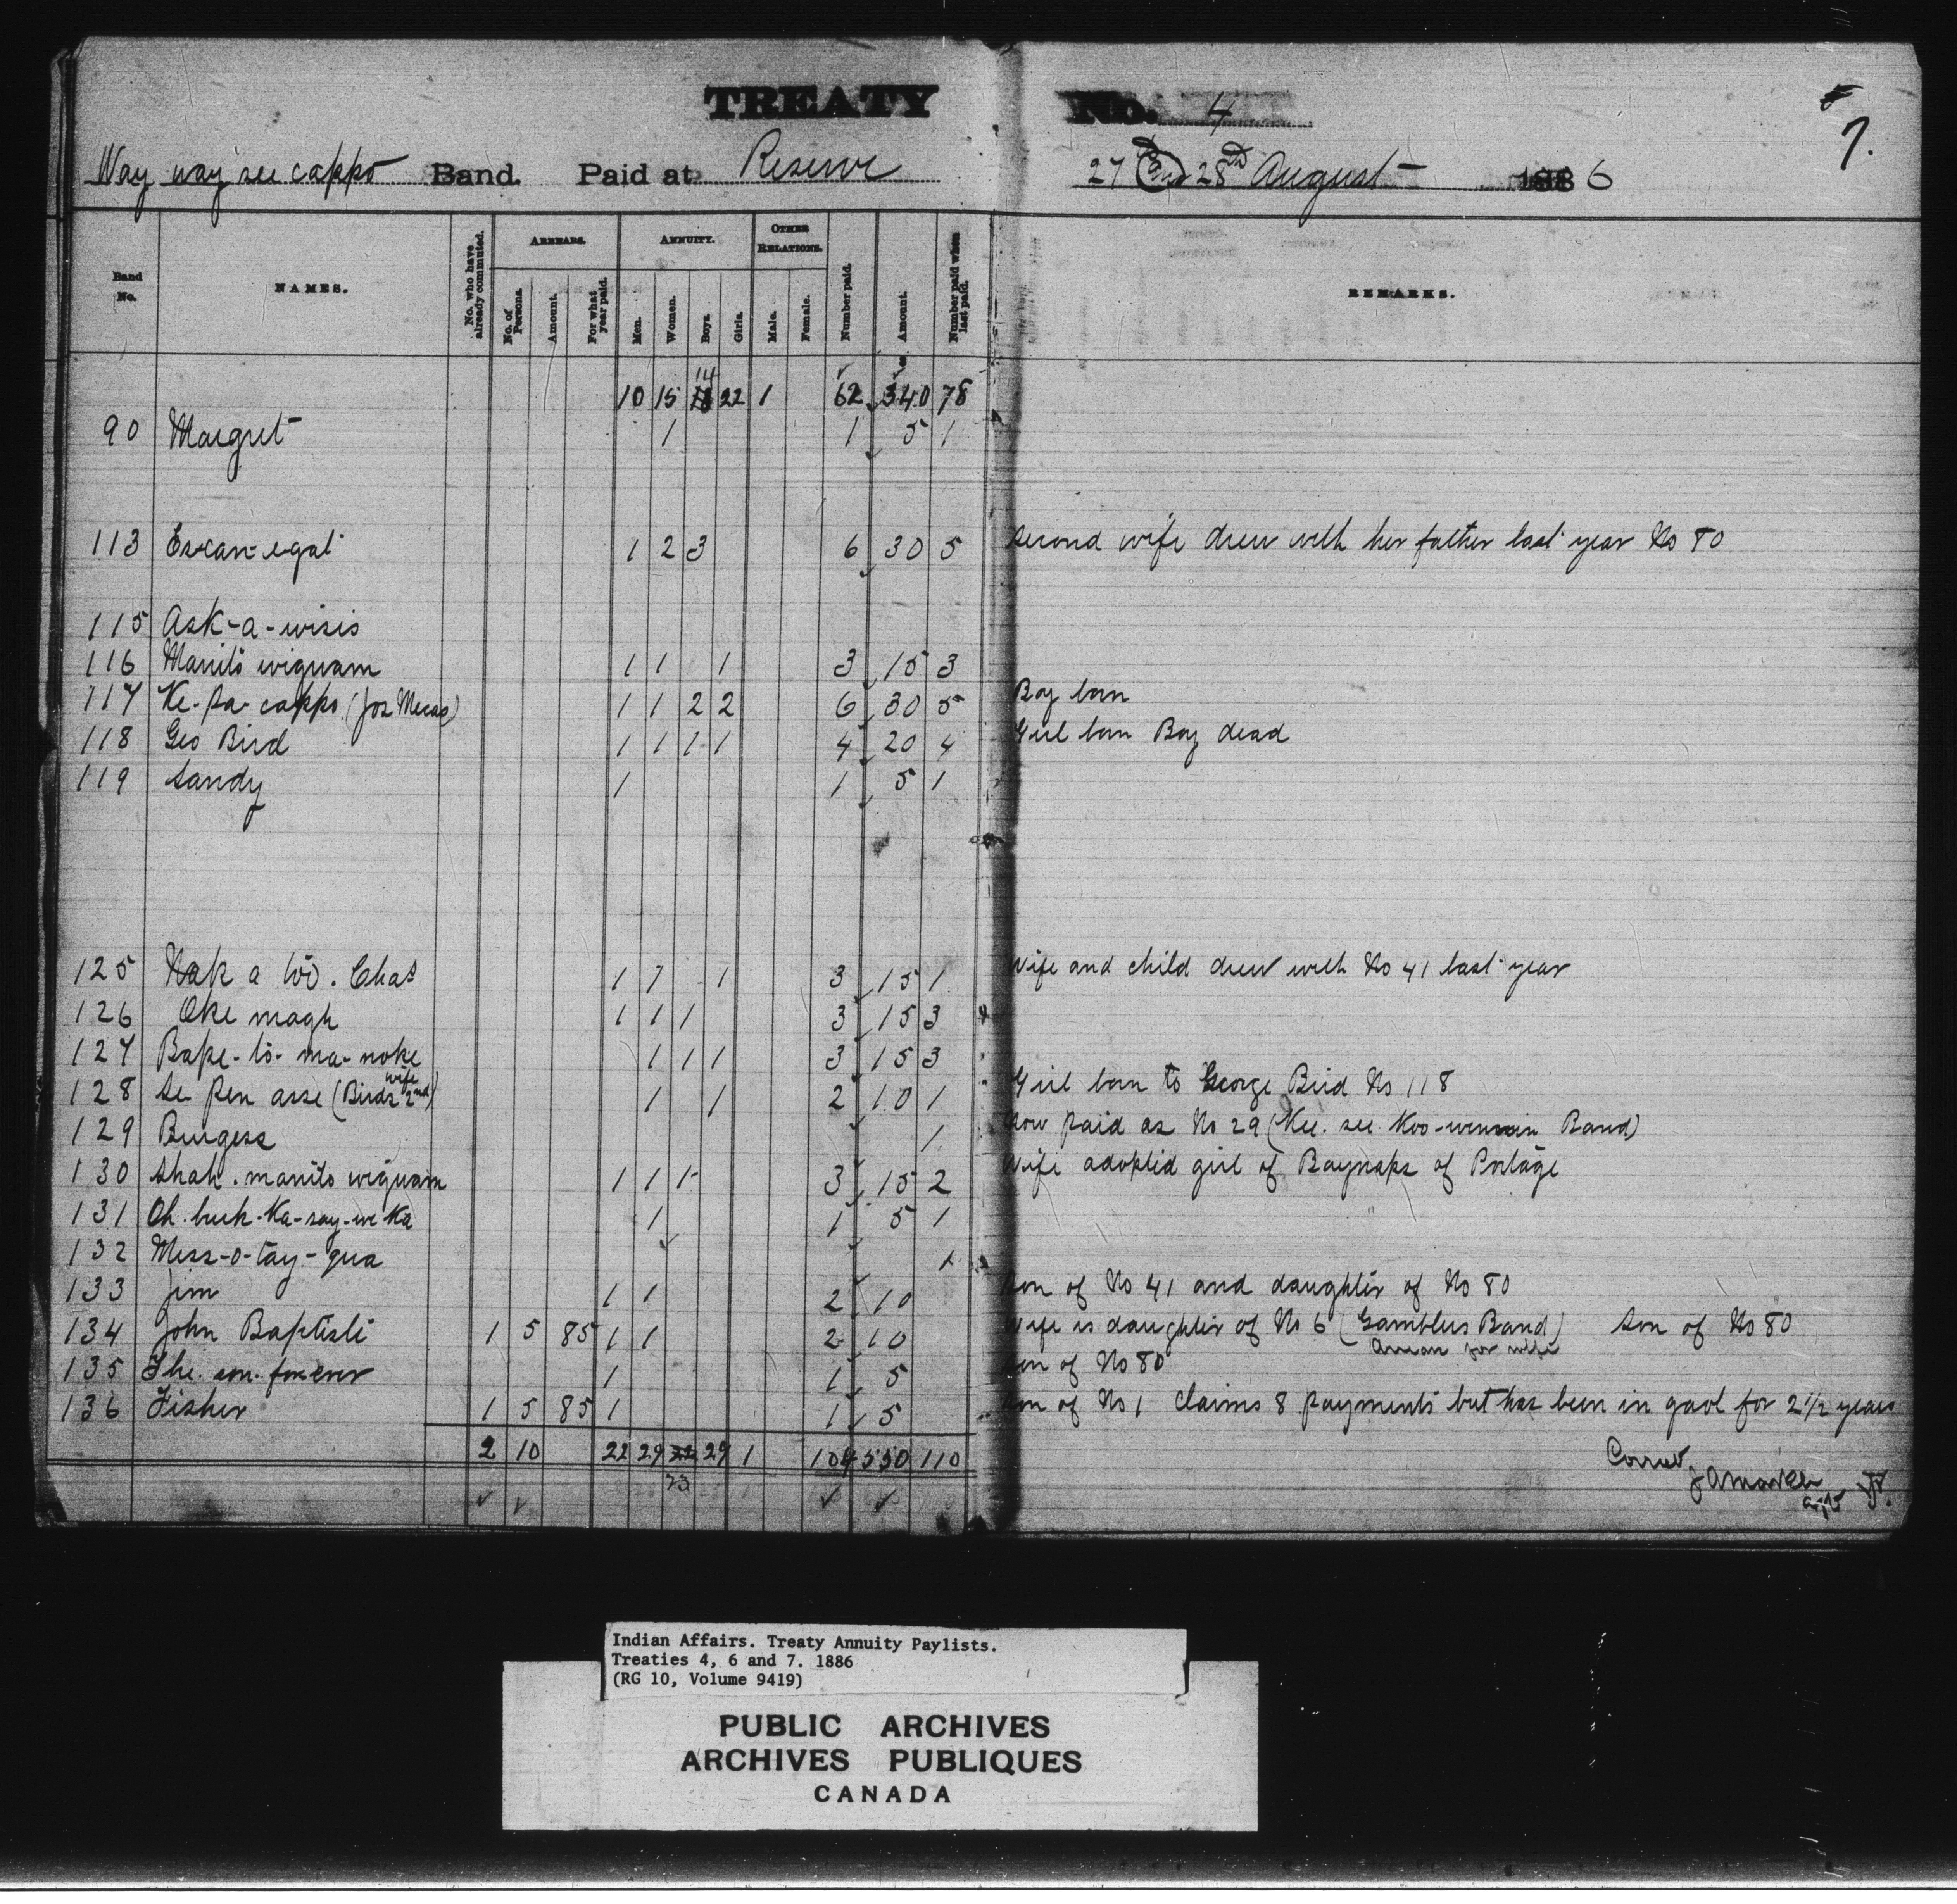 TREATY No. 4
7.
Way way see cappo Band. Paid at Reserve 27 and 28th August 1886
Band No. NAMES. No. who have already commuted. ARREARS. No. of Persons. Amount. For what year paid. ANNUITY. Men. Women. Boys. Girls. OTHER RELATIONS. Male. Female. Number paid. Amount. Number paid when last paid. REMARKS.
10 15 14 22 1 62 340 78
90 Margret 1 1 5 1
113 Es-can-egat 1 2 3 6 30 5 Second wife drew with her father last year No 80
115 Ask-a-wisis
116 Manito wigwam 1 1 1 3 15 3
117 Ke-sa-cappo (Jos Mecas) 1 1 2 2 6 30 5 Boy born
118 Geo Bird 1 1 1 1 4 20 4 Girl born Boy dead
119 Sandy 1 1 5 1
125 Nak a too. Chas 1 1 1 3 15 1 Wife and child drew with No 41 last year
126 Oke magh 1 1 1 3 15 3
127 Bape-to-ma-noke 1 1 1 3 15 3
128 Se pen asse (Birds 2nd wife) 1 1 2 10 1 Girl born to George Bird No 118
129 Burgess 1 Now paid as No 29 (Kee-see-Koo-wenin Band)
130 Shah. manito wigwam 1 1 1 3 15 2 Wife adopted girl of Baynaps of Portage
131 Oh-buck-Ka-say-we Ka 1 1 5 1
132 Mess-o-tay-qua 1
133 Jim 1 1 2 10 Son of No 41 and daughter of No 80
134 John Baptiste 1 5 85 1 1 2 10 Wife is daughter of No 6 (Gamblers Band) Son of No 80
Arrears for wife
135 The son forever 1 1 5 Son of No 80
136 Fisher 1 5 85 1 1 5 Son of No 1 Claims 8 payments but has been in gaol for 2 1/2 years
2 10 22 29 22 29 1 104 550 110
23
Correct
J A Markle
Agt
Indian Affairs. Treaty Annuity Paylists.
Treaties 4, 6 and 7. 1886
(RG 10, Volume 9419)
PUBLIC ARCHIVES
ARCHIVES PUBLIQUES
CANADA